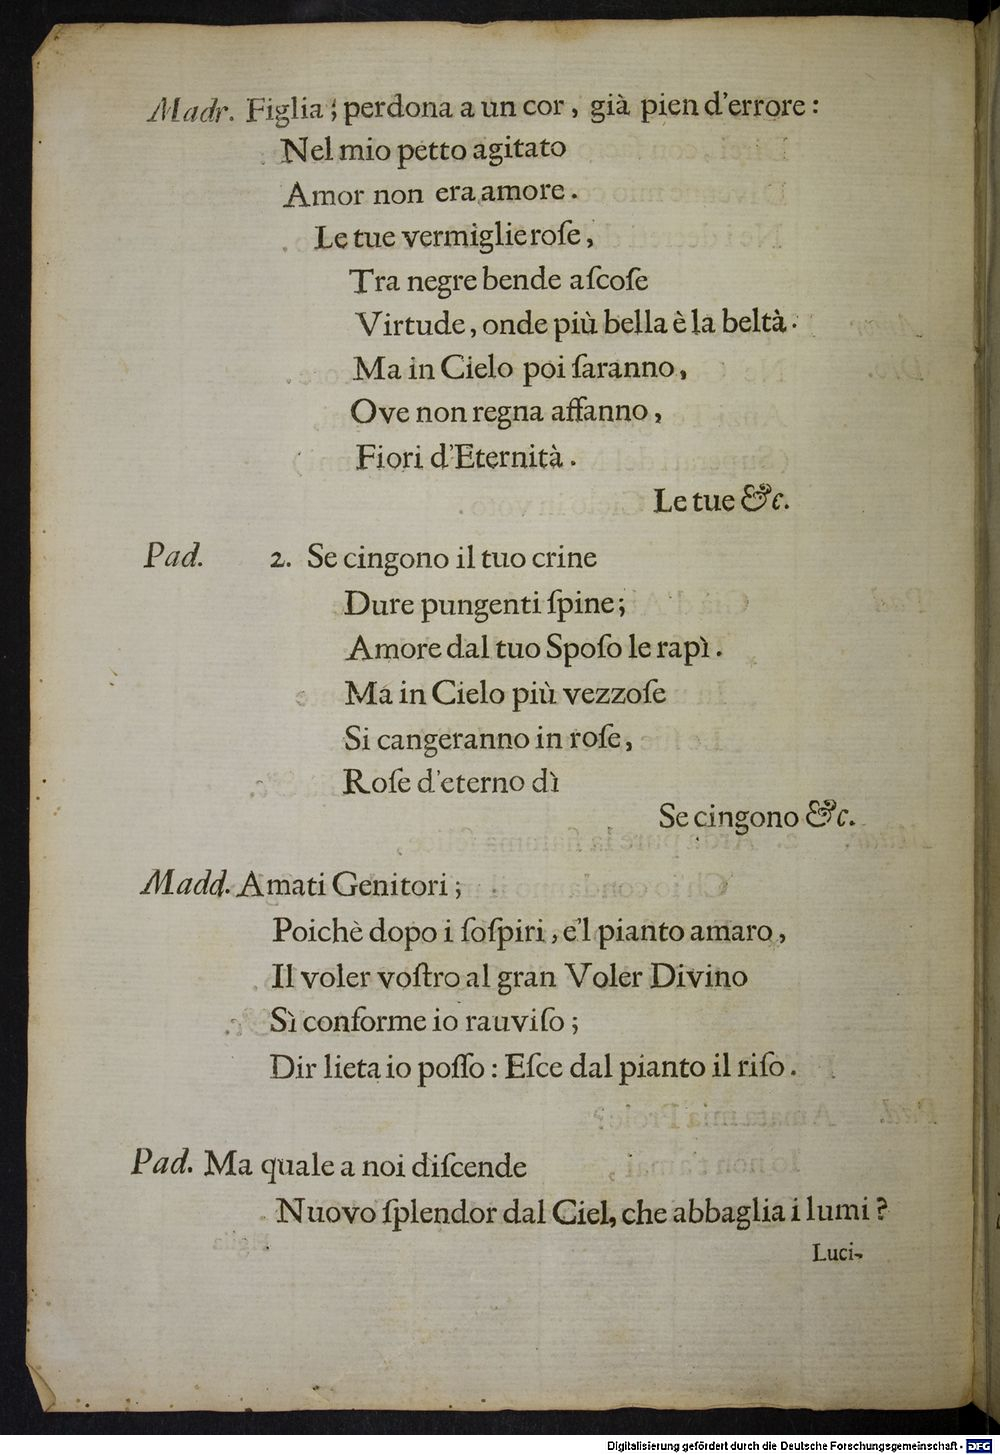 Madr. Figlia; perdona a un cor, già pien d'errore:
Nel mio petto agitato
Amor non era amore.
Le tue vermiglie roſe,
Tra negre bende aſcoſe
Virtude, onde più bella è la beltà.
Ma in Cielo poi ſaranno,
Ove non regna affanno,
Fiori d'Eternità.
Le tue &c.
Pad. 2. Se cingono il tuo crine
Dure pungenti ſpine;
Amore dal tuo Spoſo le rapì.
Ma in Cielo più vezzoſe
Si cangeranno in roſe,
Roſe d'eterno dì
Se cingono &c.
Madd. Amati Genitori;
Poichè dopo i ſoſpiri, e'l pianto amaro,
Il voler voſtro al gran Voler Divino
Sì conforme io rauviſo;
Dir lieta io poſſo: Eſce dal pianto il riſo.
Pad. Ma quale a noi diſcende
Nuovo ſplendor dal Ciel, che abbaglia i lumi?
Luci-
Digitalisierung gefördert durch die Deutsche Forschungsgemeinschaft - DFG